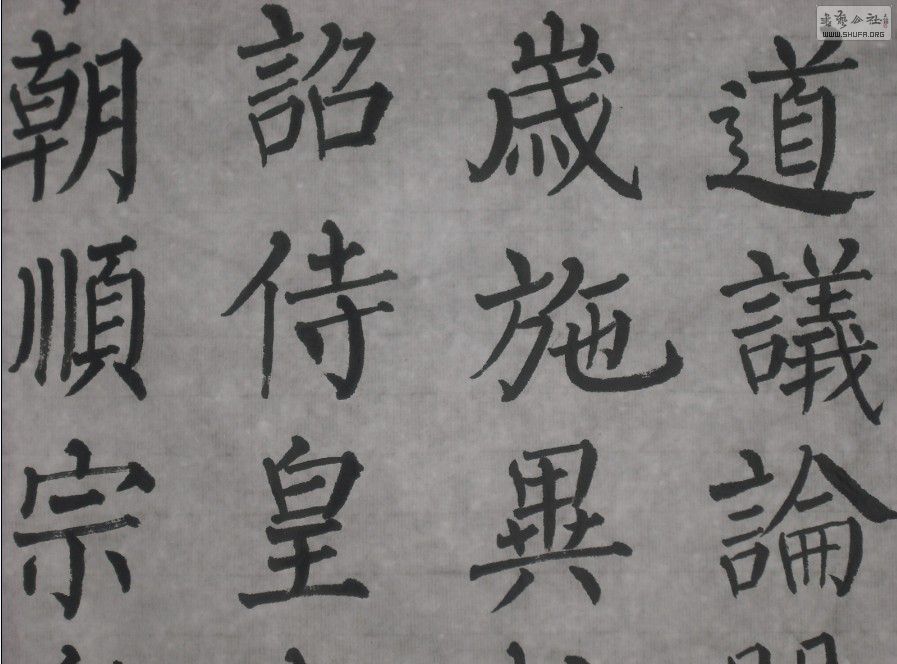 道議論
歲施異
詔侍皇
朝順宗
書藝公社
WWW.SHUFA.ORG